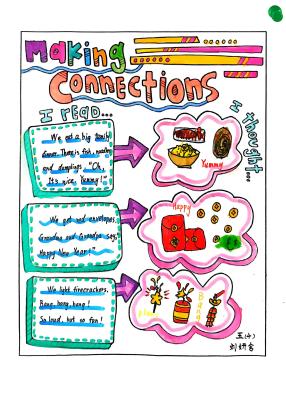 Making
Connections
I READ...
I thought...
We eat a big family
dinner. There is fish, noodles
and dumplings. "Oh,
It's nice. Yummy!"
Yummy
We get red envelopes.
Grandma and Grandpa say,
"Happy New Year!"
Happy
We light firecrackers.
Bang, bang, bang!
So loud, but so fun!
Bang
五(4)